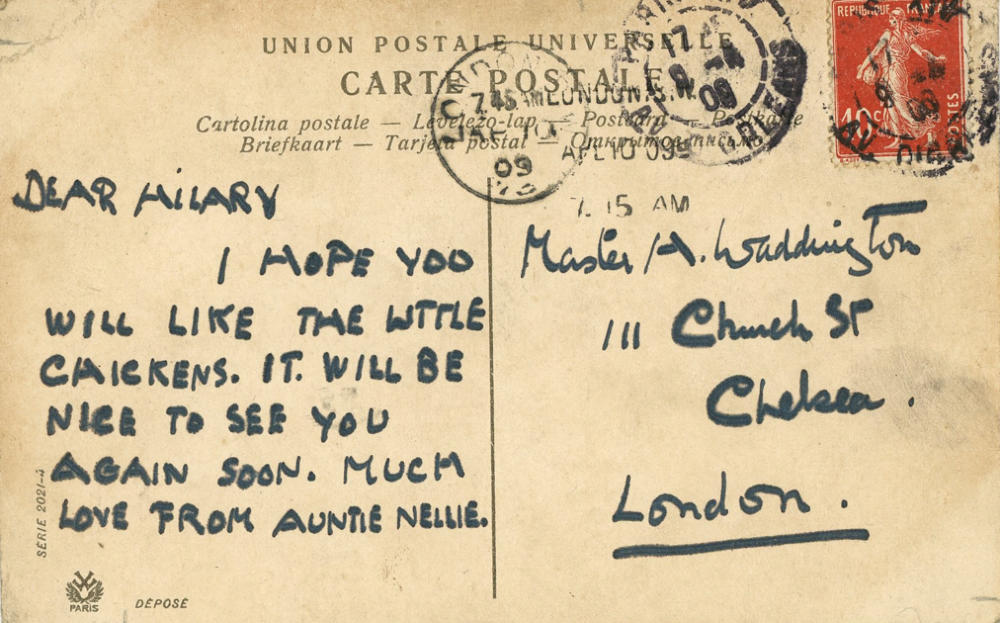 UNION POSTALE UNIVERSELLE
CARTE POSTALE
Cartolina postale — Levelező-lap — Postcard — Postkarte
Briefkaart — Tarjeta postal —
LONDON
7.45 AM
10
09
LONDON. S.W.
APL 10 09
7.15 AM
17
9 -4
09
ORLEANS
REPUBLIQUE FRANÇAISE
10c
POSTES
DEAR HILARY
I HOPE YOU
WILL LIKE THE LITTLE
CHICKENS. IT. WILL BE
NICE TO SEE YOU
AGAIN SOON. MUCH
LOVE FROM AUNTIE NELLIE.
Master H. Waddington
111 Church St
Chelsea.
London.
SÉRIE 2021-3
PARIS
DÉPOSÉ